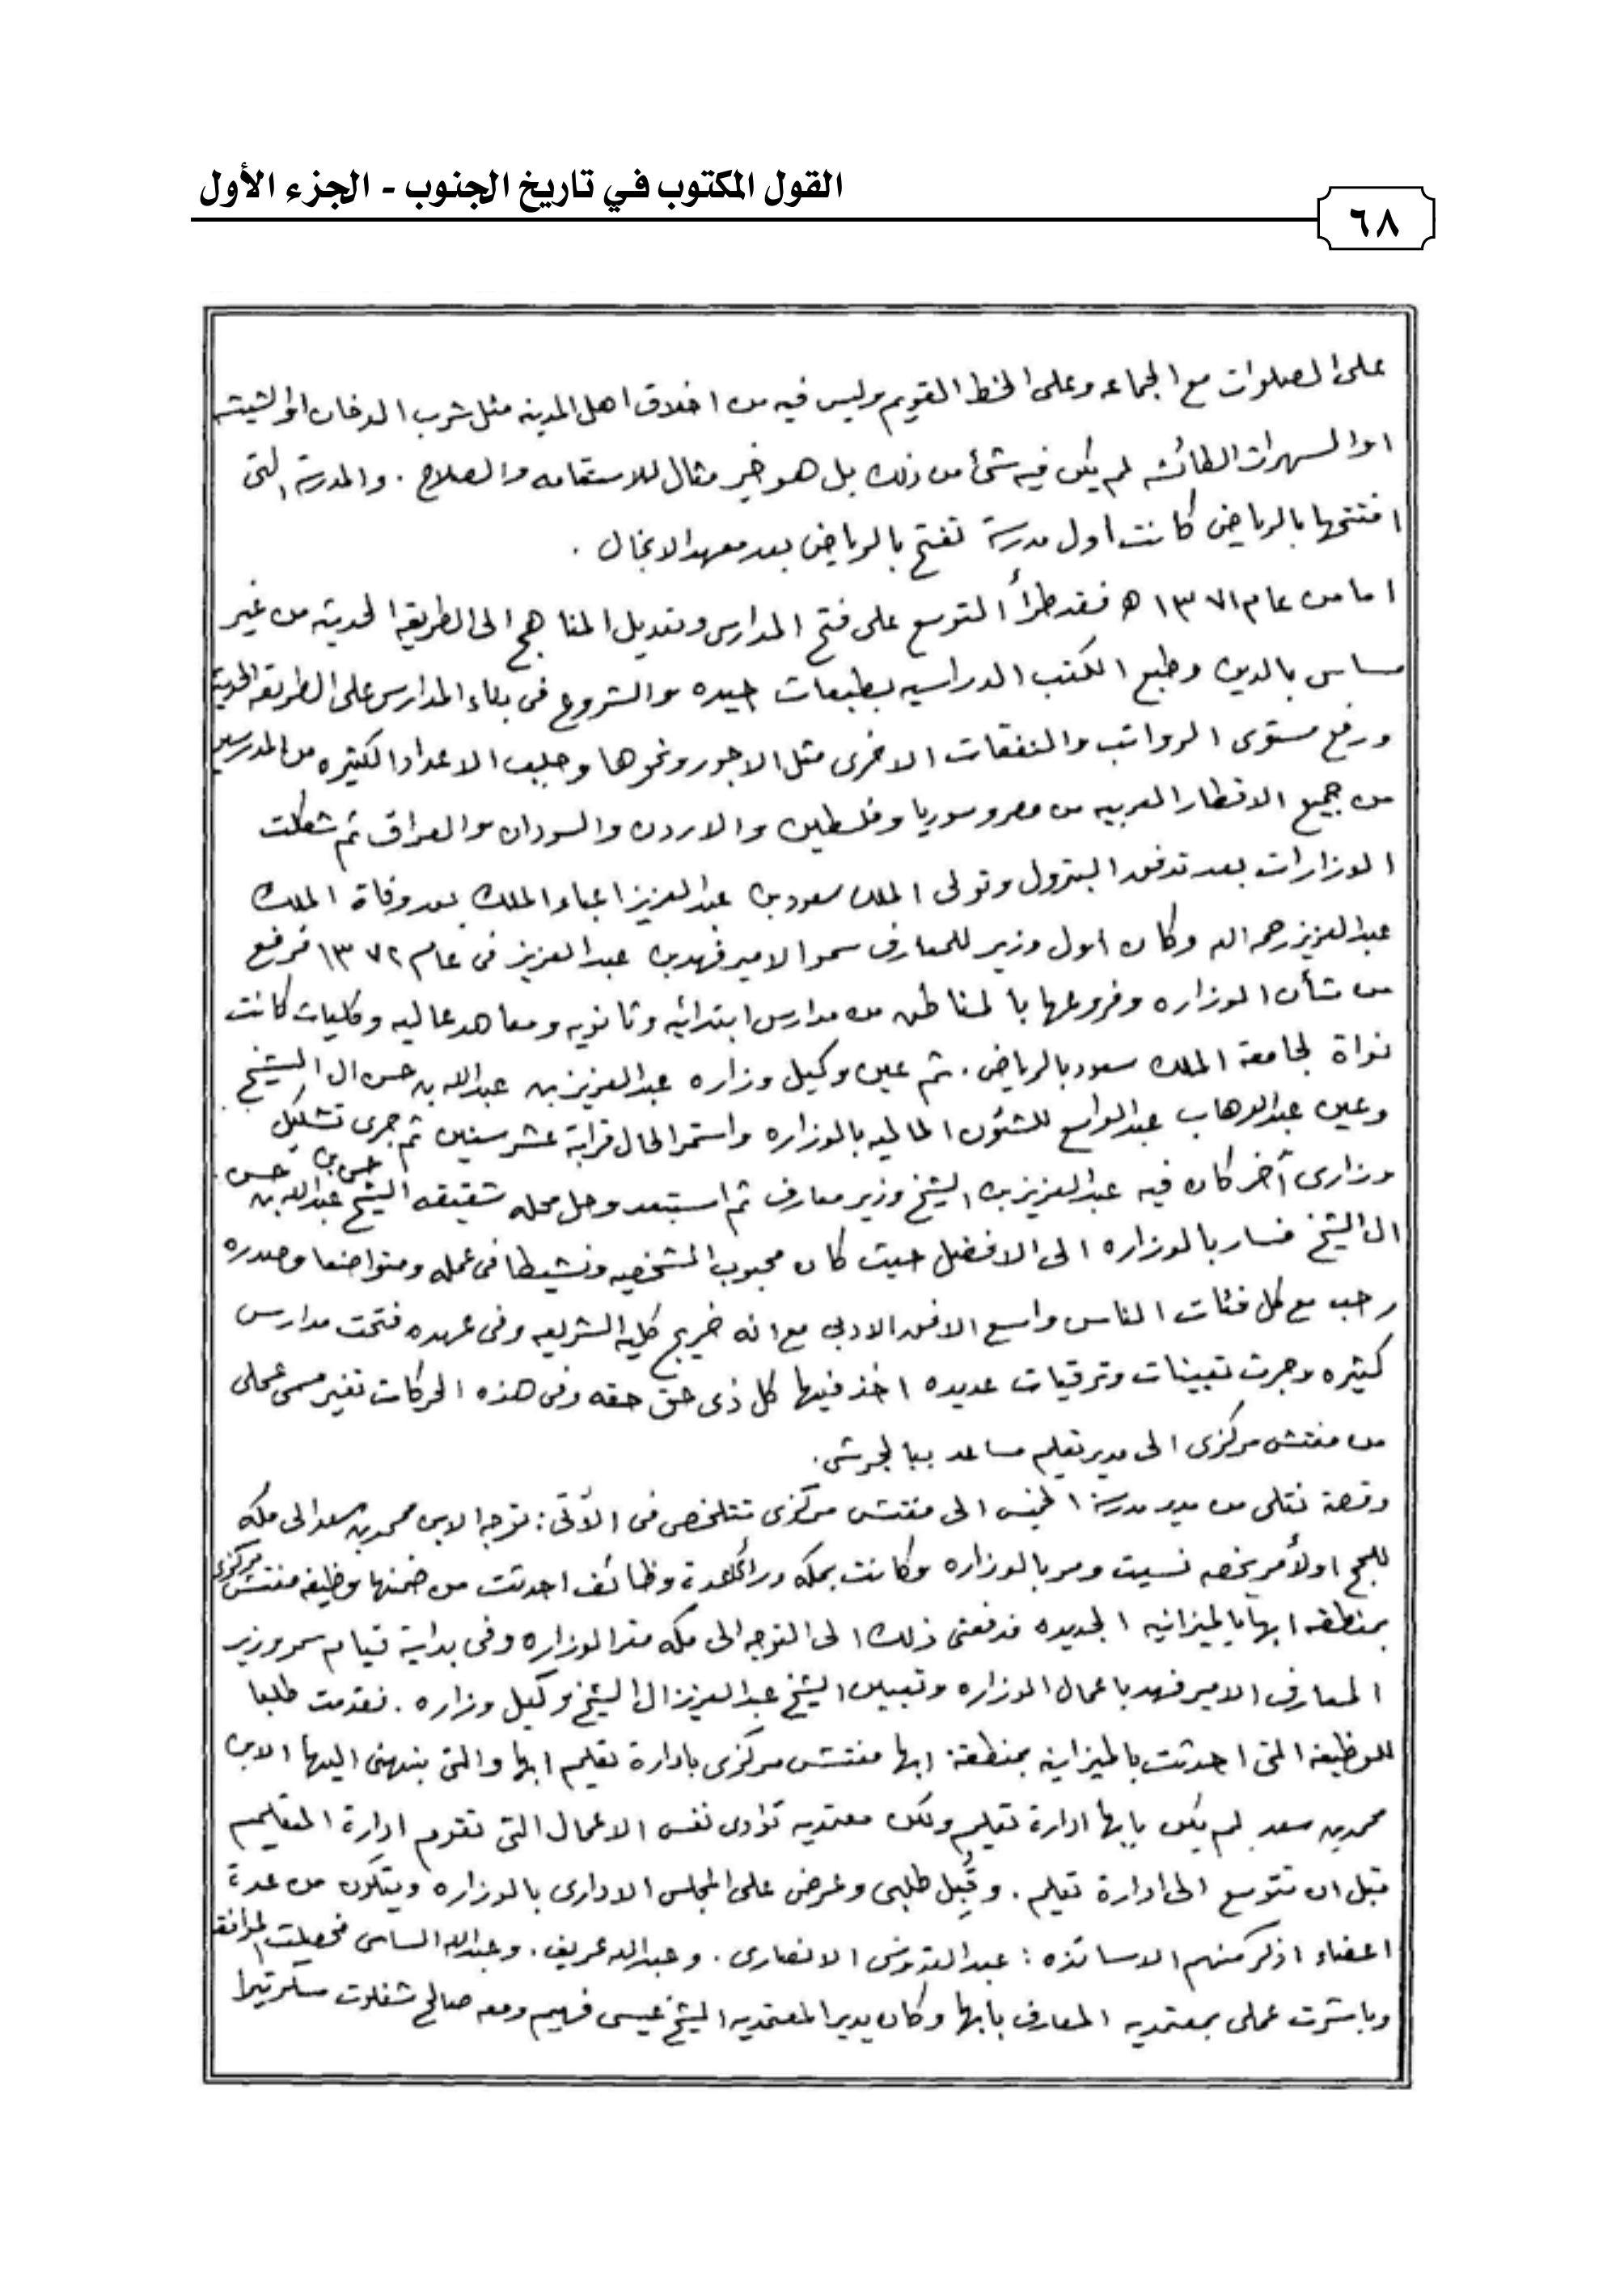 القول المكتوب في تاريخ الجنوب - الجزء الأول
٦٨
على الصلوات مع الجماعه وعلى الخط القويم وليس فيه من اخلاق اهل المدينه مثل شرب الدخان او الشيشه
او السهرات الطائشه لم يكن فيه شئ من ذلك بل هو خير مثال للاستقامه والصلاح . والمدرسة التى
افتتحها بالرياض كانت اول مدرسة تفتح بالرياض بعد معهد الانجال .
اما من عام ١٣٧١ ه فقد طرأ التوسع على فتح المدارس وتعديل المناهج الى الطريقه الحديثه من غير
مساس بالدين وطبع الكتب الدراسيه بطبعات جيده والشروع فى بناء المدارس على الطريقه الحديثه
ورفع مستوى الرواتب والنفقات الاخرى مثل الاجور ونحوها وجلب الاعداد الكثيره من المدرسين
من جميع الاقطار العربيه من مصر وسوريا وفلسطين والاردن والسودان والعراق ثم شكلت
الوزارات بعد تدفق البترول وتولى الملك سعود بن عبدالعزيز اعباء الملك بعد وفاة الملك
عبدالعزيز رحمه الله وكان اول وزير للمعارف سمو الامير فهد بن عبدالعزيز فى عام ١٣٧٢ فرفع
من شأن الوزاره وفروعها بالمناطق من مدارس ابتدائيه وثانويه ومعاهد عاليه وكليات كانت
نواة لجامعة الملك سعود بالرياض . ثم عين وكيل وزاره عبدالعزيز بن عبدالله بن حسن ال الشيخ .
وعين عبدالوهاب عبدالواسع للشئون الماليه بالوزاره واستمر الحال قرابة عشر سنين ثم جرى تشكيل
وزارى أخر كان فيه عبدالعزيز بن الشيخ وزير معارف ثم استبعد وحل محله شقيقه الشيخ حسن بن عبدالله بن حسن
ال الشيخ فسار بالوزاره الى الافضل حيث كان محبوب الشخصيه ونشيطا فى عمله ومتواضعا وصدره
رحب مع كل فئات الناس واسع الافق الادبى مع انه خريج كلية الشريعه وفى عهده فتحت مدارس
كثيره وجرت تعيينات وترقيات عديده اخذ فيها كل ذى حق حقه وفى هذه الحركات تغير مسمى عملى
من مفتش مركزى الى مدير تعليم مساعد ببالجرشى .
وقصة نقلى من مدير مدرسة الخميس الى مفتش مركزى تتلخص فى الأتى : توجه الابن محمد بن سعد الى مكه
للحج اولأمر يخصه نسيت ومر بالوزاره وكانت بمكه ورأى عدة وظائف احدثت من ضمنها وظيفه مفتش مركزى
بمنطقه ابها بالميزانيه الجديده فدفعنى ذلك الى التوجه الى مكه مقر الوزاره وفى بداية قيام سمو وزير
المعارف الامير فهد باعمال الوزاره وتعيين الشيخ عبدالعزيز ال الشيخ وكيل وزاره . تقدمت طلبا
للوظيفه التى احدثت بالميزانيه بمنطقة ابها مفتش مركزى بادارة تعليم ابها والتى بنهنى اليها الابن
محمد بن سعد لم يكن بابها ادارة تعليم ولكن معتمديه تؤادى نفس الاعمال التى تقوم ادارة التعليم
قبل ان تتوسع الى ادارة تعليم . وقُبِل طلبى وعرض على المجلس الادارى بالوزاره ويتكون من عدة
اعضاء اذكر منهم الاساتذه : عبدالقدوس الانصارى . وعبدالله عريف . وعبدالله الساسى فحصلت الموافقه
وباشرت عملى بمعتمديه المعارف بابها وكان يدير المعتمديه الشيخ عيسى فهيم ومعه صالح شفلوت سكرتيرا